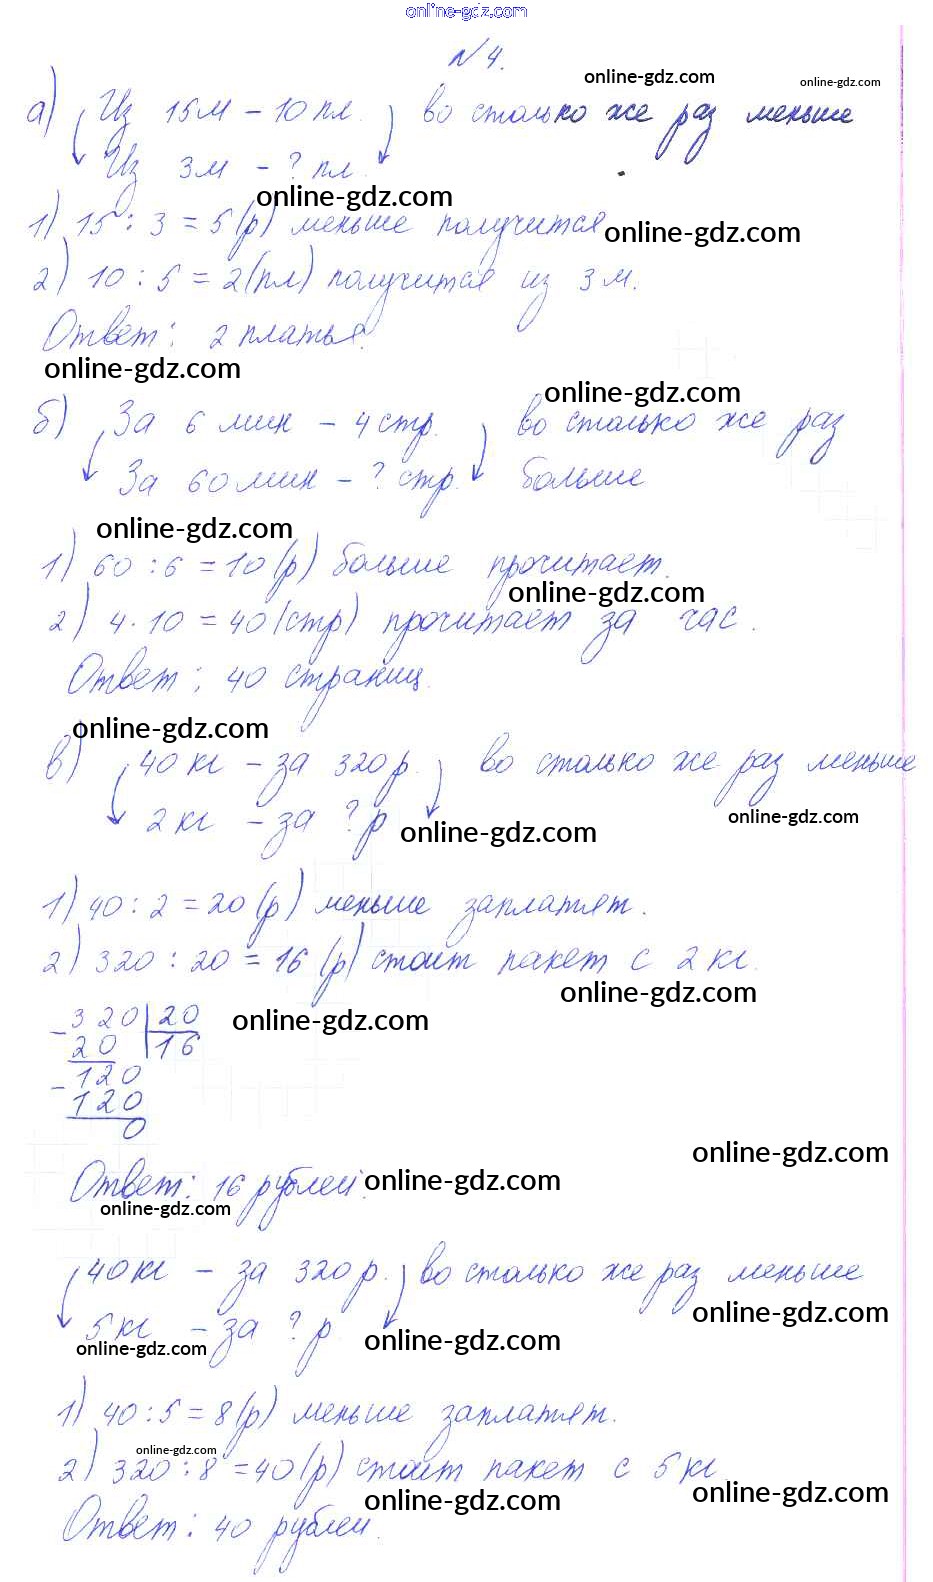 online-gdz.com
№ 4.
online-gdz.com
online-gdz.com
а) Из 15м – 10 пл. во столько же раз меньше
Из 3м – ? пл.
online-gdz.com
1) 15 : 3 = 5 (р) меньше получится
online-gdz.com
2) 10 : 5 = 2 (пл) получится из 3 м.
Ответ: 2 платья.
online-gdz.com
online-gdz.com
б) За 6 мин – 4 стр. во столько же раз
За 60 мин – ? стр. больше
online-gdz.com
1) 60 : 6 = 10 (р) больше прочитает.
online-gdz.com
2) 4 · 10 = 40 (стр) прочитает за час.
Ответ: 40 страниц.
online-gdz.com
в) 40 кг – за 320 р. во столько же раз меньше
2 кг – за ? р
online-gdz.com
online-gdz.com
1) 40 : 2 = 20 (р) меньше заплатят.
2) 320 : 20 = 16 (р) стоит пакет с 2 кг.
online-gdz.com
– 320 | 20
20 | 16
online-gdz.com
– 120
120
0
online-gdz.com
Ответ: 16 рублей.
online-gdz.com
online-gdz.com
40 кг – за 320 р. во столько же раз меньше
online-gdz.com
5 кг – за ? р.
online-gdz.com
online-gdz.com
1) 40 : 5 = 8 (р) меньше заплатят.
online-gdz.com
2) 320 : 8 = 40 (р) стоит пакет с 5 кг
online-gdz.com
online-gdz.com
Ответ: 40 рублей.